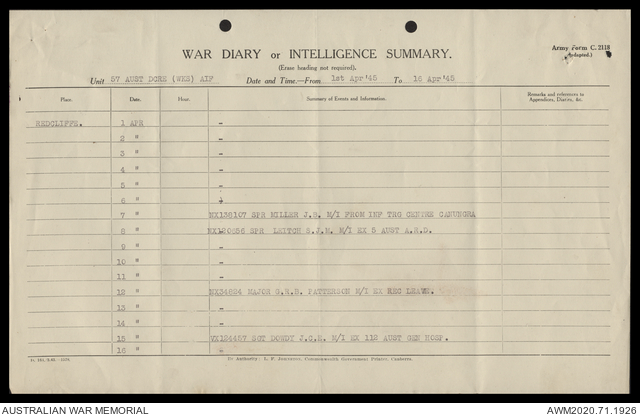 WAR DIARY or INTELLIGENCE SUMMARY.
Army Form C. 2118
(Adapted.)
(Erase heading not required).
Unit 57 AUST DCRE (WKS) AIF Date and Time.—From 1st Apr'45 To 16 Apr'45
Place. Date. Hour. Summary of Events and Information. Remarks and references to Appendices, Diaries, &c.
REDCLIFFE. 1 APR -
2 " -
3 " -
4 " -
5 " -
6 "
7 " NX138107 SPR MILLER J.B. M/I FROM INF TRG CENTRE CANUNGRA
8 " SPR LEITCH S.J.M. M/I EX 5 AUST A.R.D.
9 " -
10 " -
11 " -
12 " NX34624 MAJOR G.R.B. PATTERSON M/I EX REC LEAVE.
13 " -
14 " -
15 " VX124457 SGT DOWDY J.C.E. M/I EX 112 AUST GEN HOSP.
16 " -
By Authority: L. F. Johnston, Commonwealth Government Printer, Canberra.
AUSTRALIAN WAR MEMORIAL AWM2020.71.1926